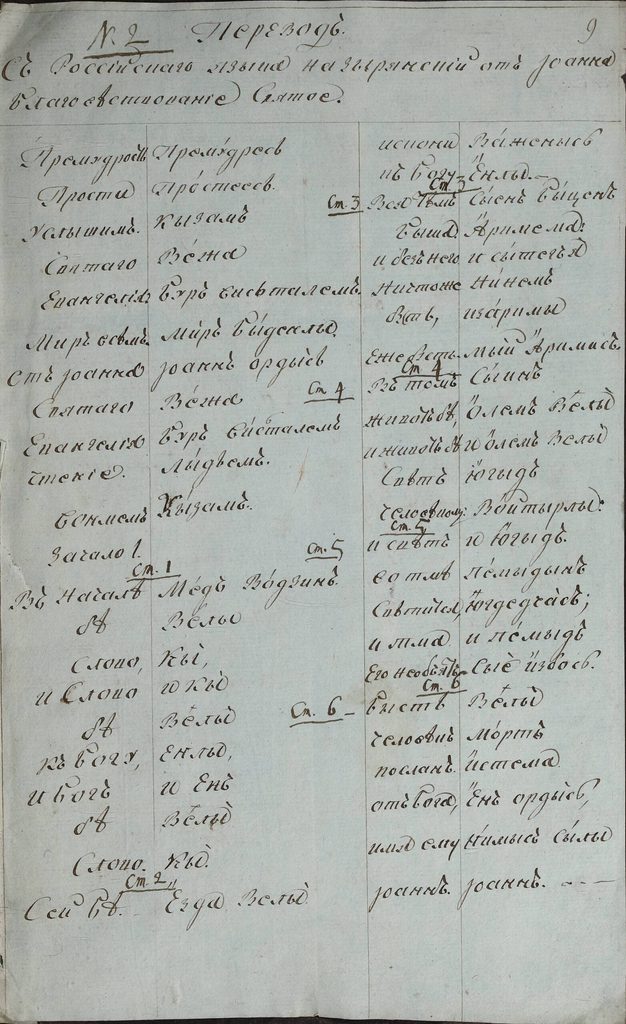 N. 2 Переводъ. 9
Съ Россійскаго языка на зырянскій отъ Іоанна
Благовѣствованіе Святое.
Премудрость Премудресъ
Прости Простесъ.
Услышимъ. Кызамъ
Святаго Вежа
Евангелія: Буръ висьталемъ.
Миръ всѣмъ. Миръ быдснлы.
Отъ Іоанна Іоаннъ ордысь
Святаго Вежа
Евангелія Буръ висталемъ
чтеніе. Лыдьемъ.
Вонмемъ Кызамъ.
Зачало 1.
Ст. 1
Въ началѣ Медъ Водзинъ.
бѣ Велы
Слово, Кыі,
и Слово и Кыі
бѣ Велы
къ Богу, Енлы,
и Богъ и Енъ
бѣ Велы
Слово. Кыі.
Ст. 2
Сей бѣ. Езда Велы
искони Важеныс
къ Богу Енлы.
Ст. 3 Ст. 3
Вся тѣмъ Сыен быщенъ
быша: Аримема:
и безъ него и сытегъя
ничтоже нинемъ
бысть, изаримы
еже бысть. мый Аримисъ.
Ст. 4 Ст. 4
Въ томъ Сыинъ
животъ бѣ, олемъ Велы
и животъ бѣ и олемъ Велы
Свѣтъ Югыдъ
человѣкомъ: Войтырлы:
Ст. 5 Ст. 5
и свѣтъ и Югыдъ
во тмѣ пемыдынъ
Свѣтится, Югдедчасъ;
и тма и пемыдъ
Его не объятъ. Сые избось.
Ст. 6 Ст. 6
Бысть Велы
человѣкъ Мортъ
посланъ. Истема
отъ Бога, Енъ ордысь,
имя ему Нимысъ Сылы
Іоаннъ. Іоаннъ.